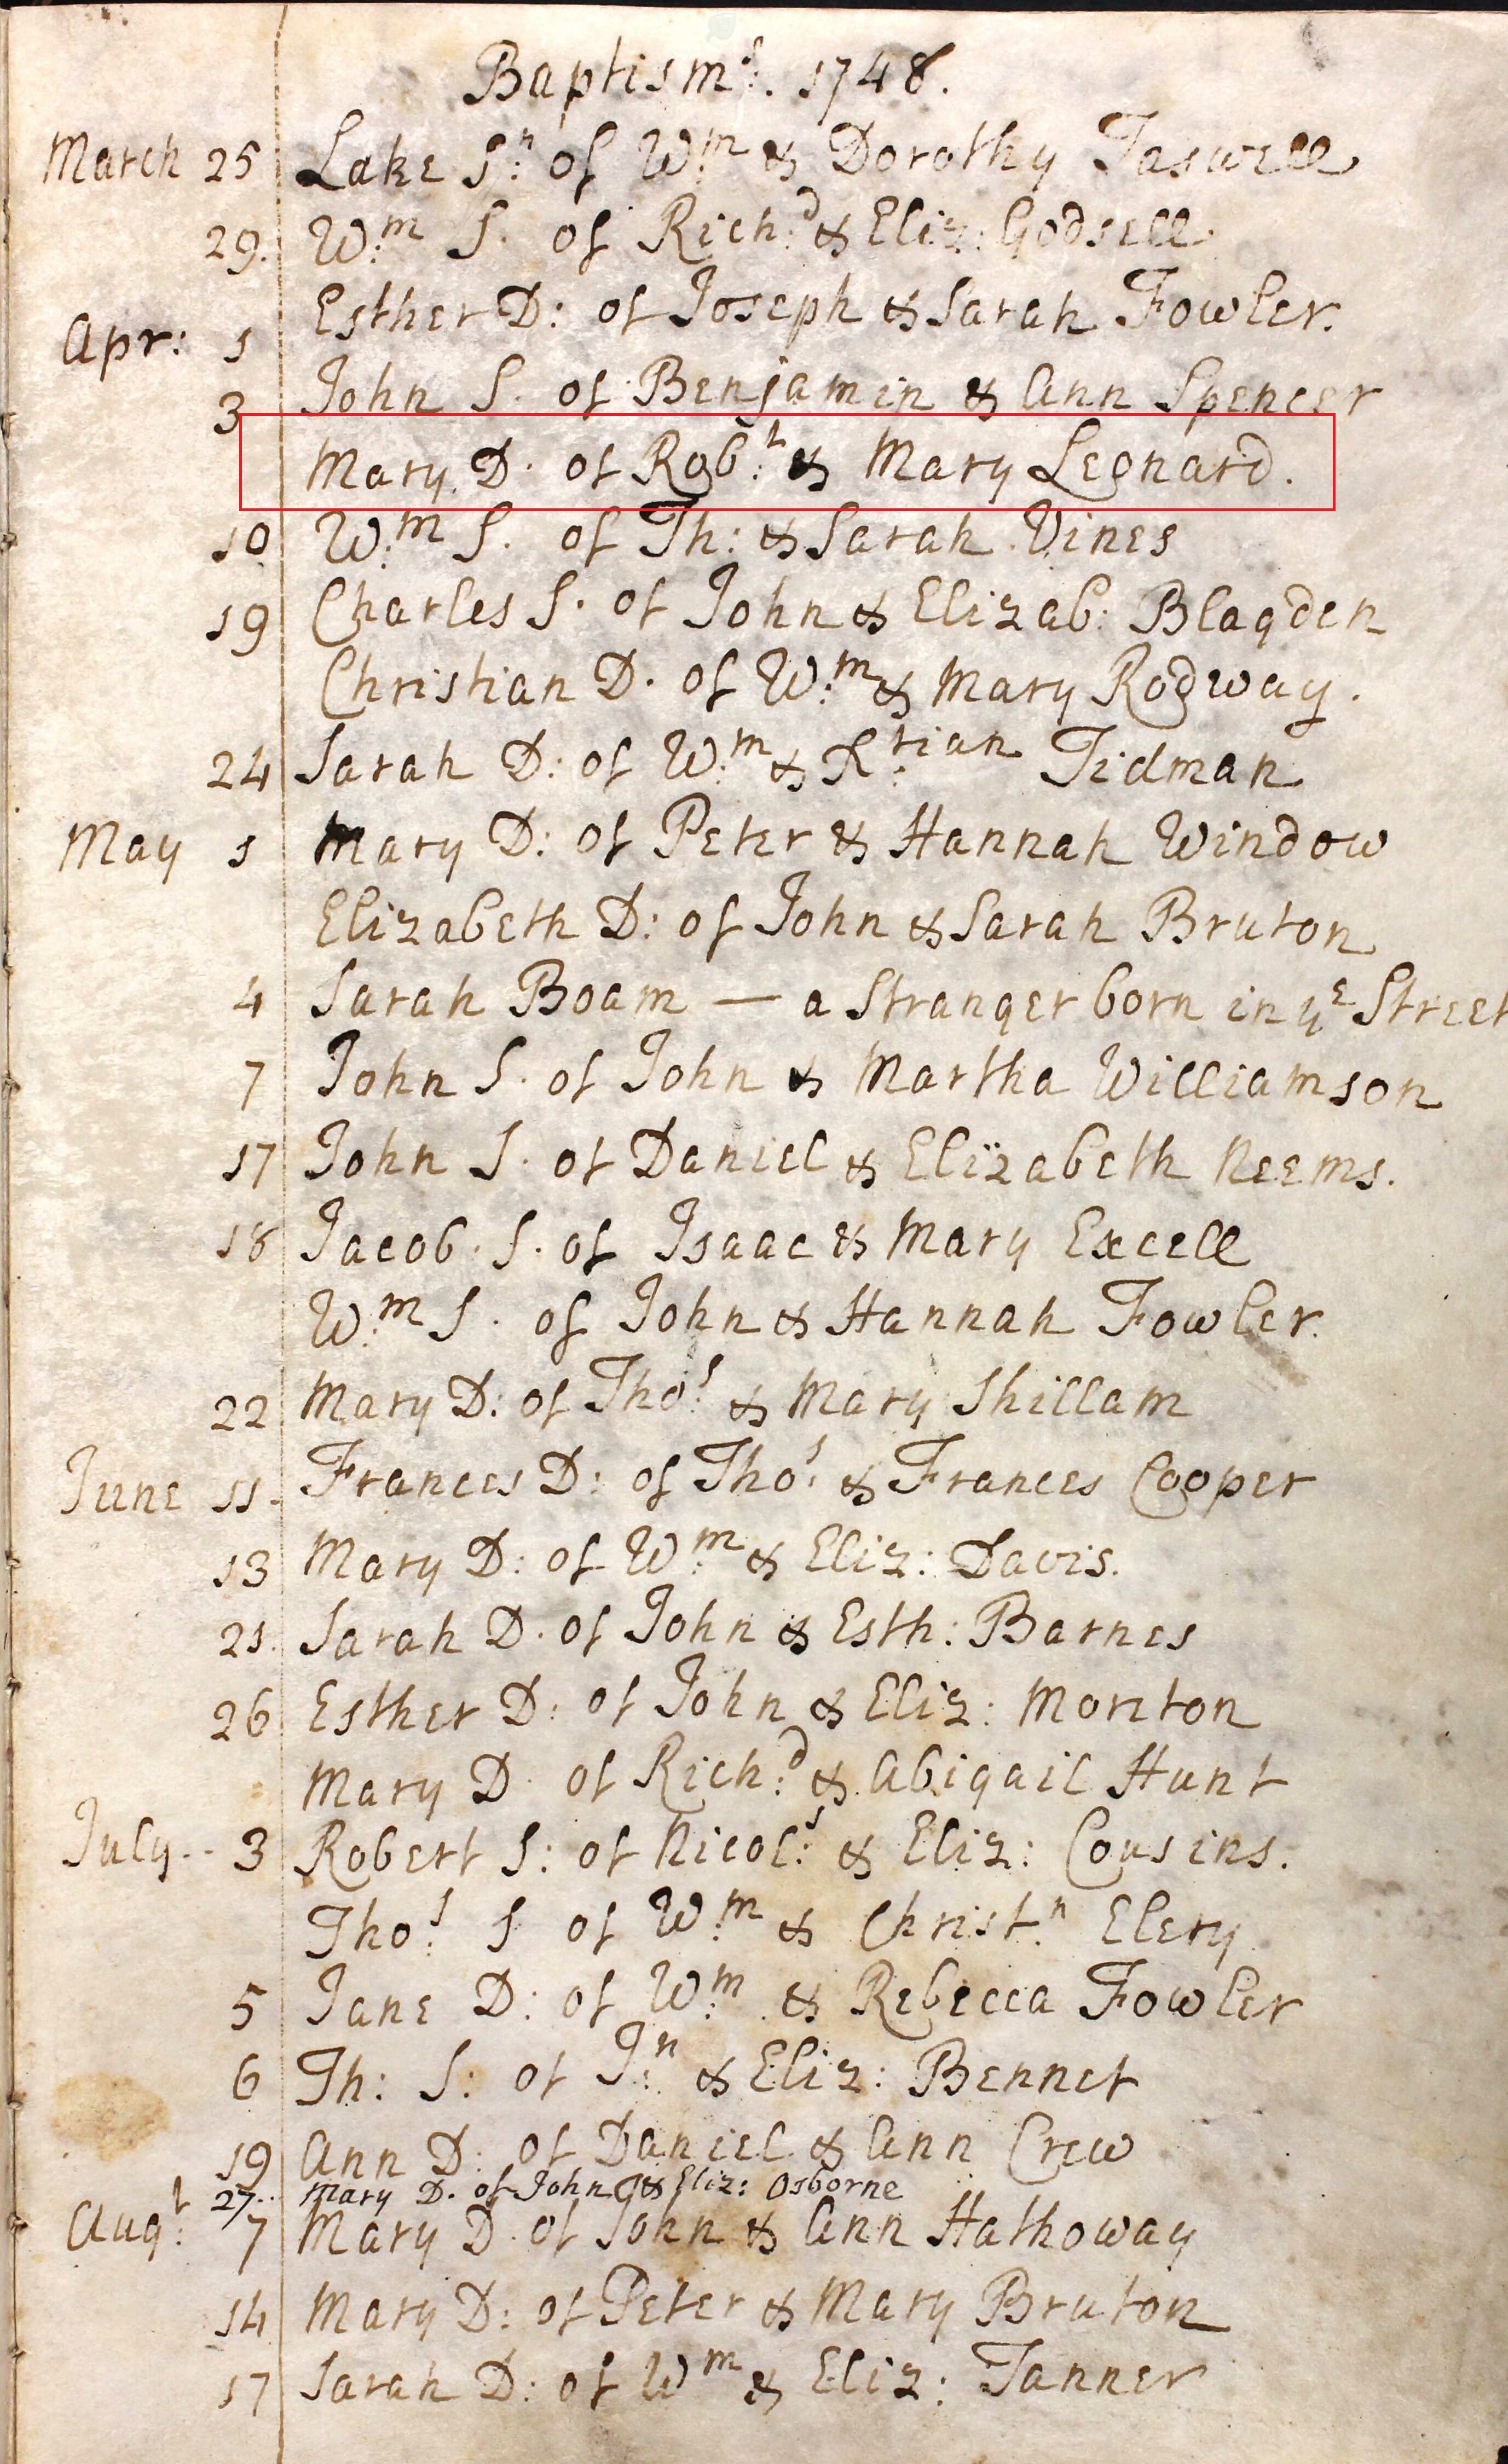 Baptism.s 1748.
March 25 Lake S.n of W.m & Dorothy Taswell
29. W.m S. of Rich.d & Eliz: Godsell.
Apr: 1 Esther D: of Joseph & Sarah Fowler.
3 John S. of Benjamin & Ann Spencer
Mary D. of Rob.t & Mary Leonard.
10 W.m S. of Th: & Sarah Vines
19 Charles S. of John & Elizab: Blagden
Christian D. of W.m & Mary Rodway.
24 Sarah D: of W.m & X.tian Tidman
May 1 Mary D: of Peter & Hannah Window
Elizabeth D: of John & Sarah Bruton
4 Sarah Boam — a Stranger born in ye Street
7 John S. of John & Martha Williamson
17 John S. of Daniel & Elizabeth Neems.
18 Jacob. S. of Isaac & Mary Excell
W.m S. of John & Hannah Fowler.
22 Mary D: of Tho.s & Mary Shillam
June 11. Frances D: of Tho.s & Frances Cooper
13 Mary D: of W.m & Eliz: Davis.
21. Sarah D. of John & Esth: Barnes
26 Esther D: of John & Eliz: Morton
Mary D. of Rich.d & Abigail Hunt
July.. 3 Robert S: of Nicol.s & Eliz: Cousins.
Tho.s S of W.m & Christ.n Elery
5 Jane D: of W.m & Rebecca Fowler
6 Th: S: of J.n & Eliz: Bennet
19 Ann D: of Daniel & Ann Crew
27.. Mary D. of John & Eliz: Osborne
Aug.t 7 Mary D. of John & Ann Hathoway
14 Mary D: of Peter & Mary Bruton
17 Sarah D: of W.m & Eliz: Tanner